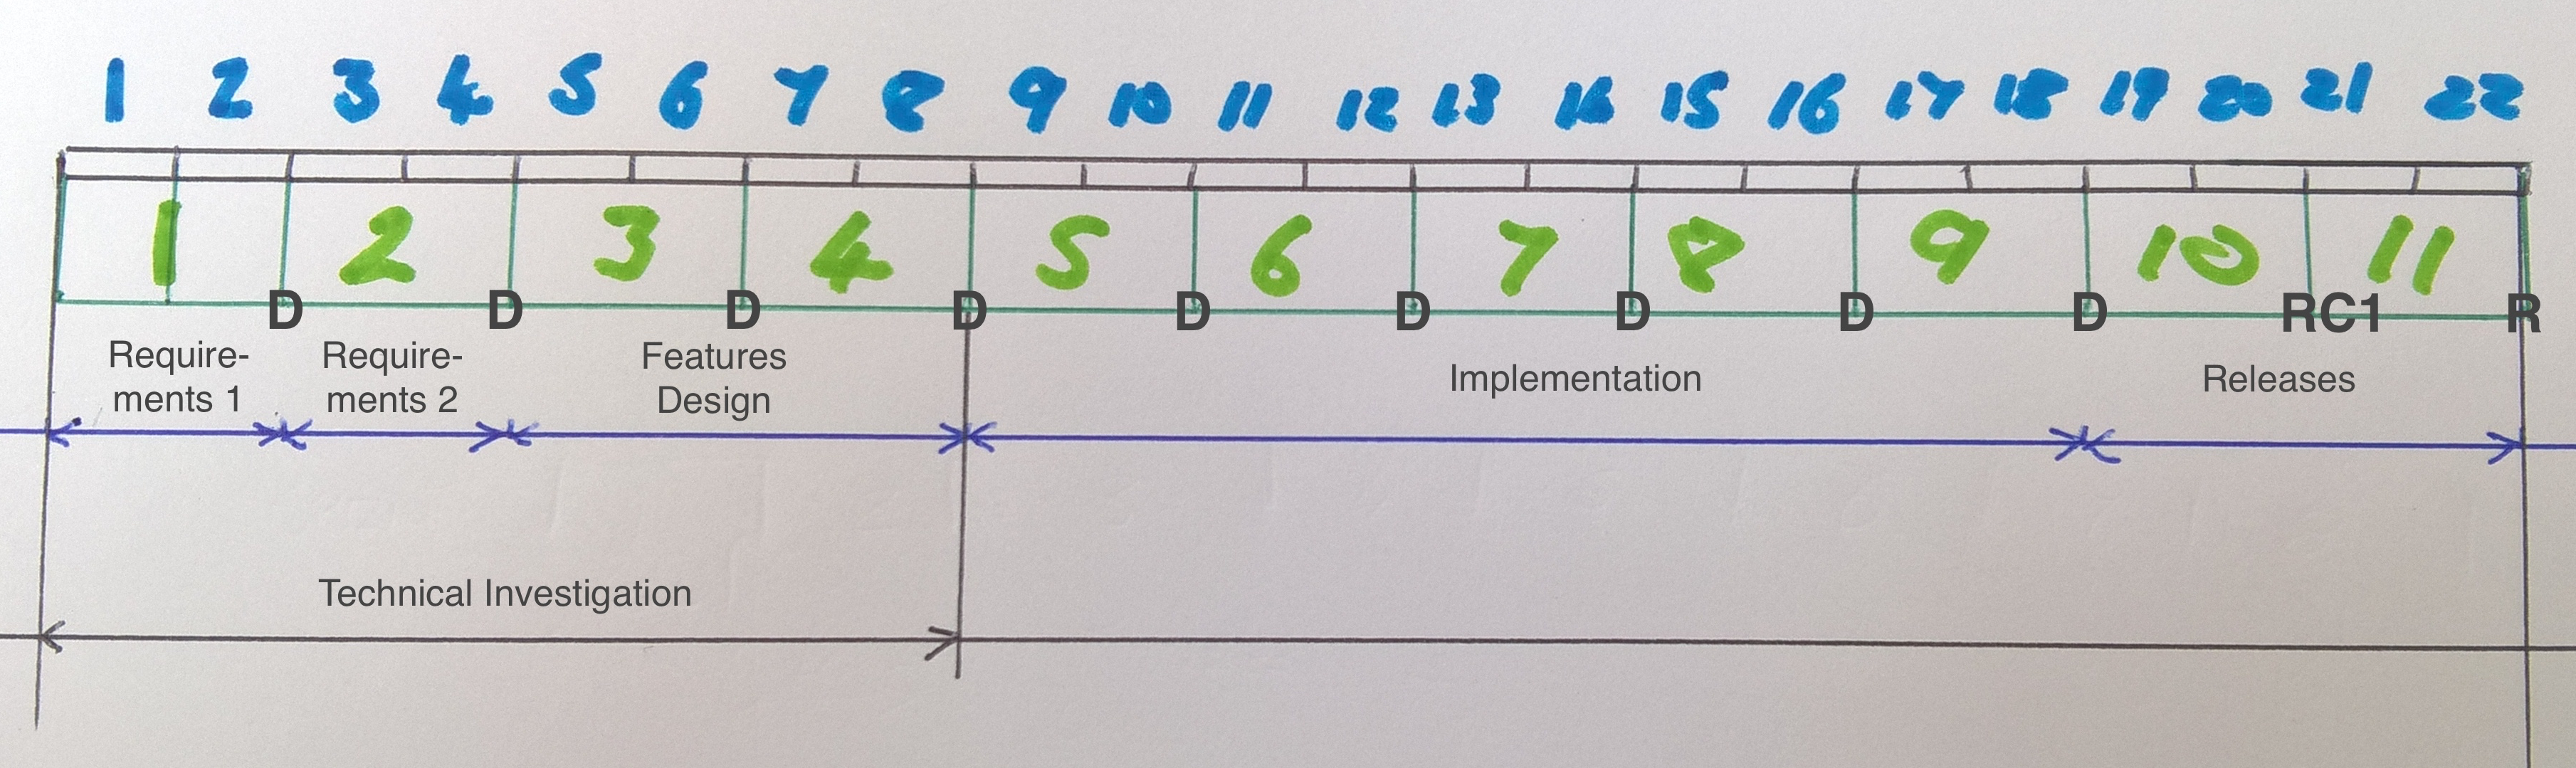 1 2 3 4 5 6 7 8 9 10 11 12 13 14 15 16 17 18 19 20 21 22
1 2 3 4 5 6 7 8 9 10 11
D D D D D D D D D RC1 R
Require-
ments 1
Require-
ments 2
Features
Design
Implementation
Releases
Technical Investigation